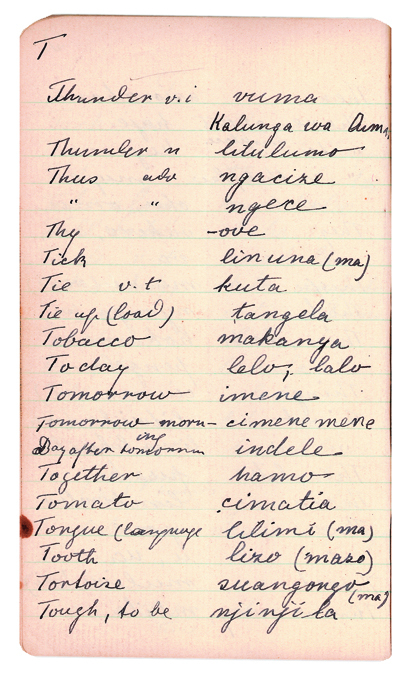 T
Thunder v.i vuma
Kalunga wa
Thunder n litulumo
Thus adv ngacize
" " ngece
Thy -ove
Tick linuna (ma)
Tie v.t kuta
Tie up (load) tangela
Tobacco makanya
Today lelo, lalo
Tomorrow imene
Tomorrow morn- cimene mene
ing
Day after tomorrow indele
Together hamo
Tomato cimatia
Tongue (language lilimi (ma)
Tooth lizo (mazo)
Tortoise suangongo (ma)
Tough, to be njinjila